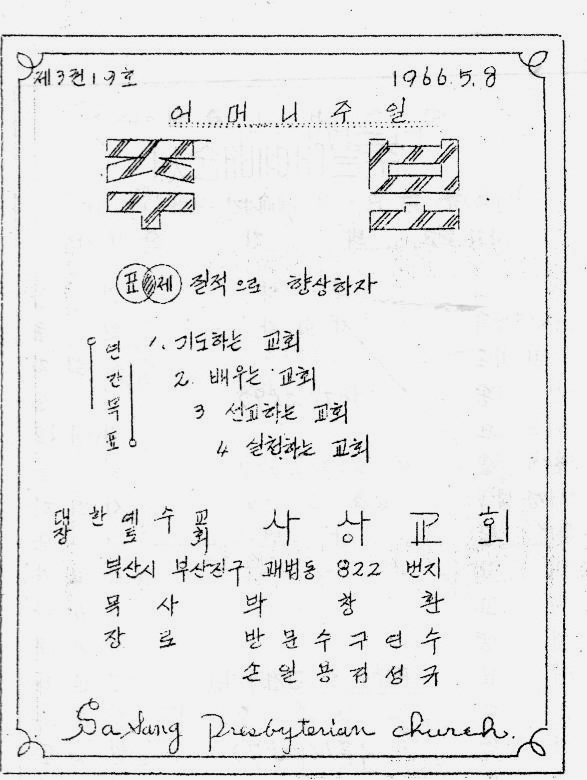 제3권19호 1966.5.8
어머니주일
주 보
표제 질적으로 향상하자
연간목표
1. 기도하는 교회
2. 배우는 교회
3 선교하는 교회
4 실천하는 교회
대한예수교장로회 사상교회
부산시 부산진구 괘법동 822 번지
목사 박창환
장로 반문수 구연수
손일용 김성규
Sasang Presbyterian church.